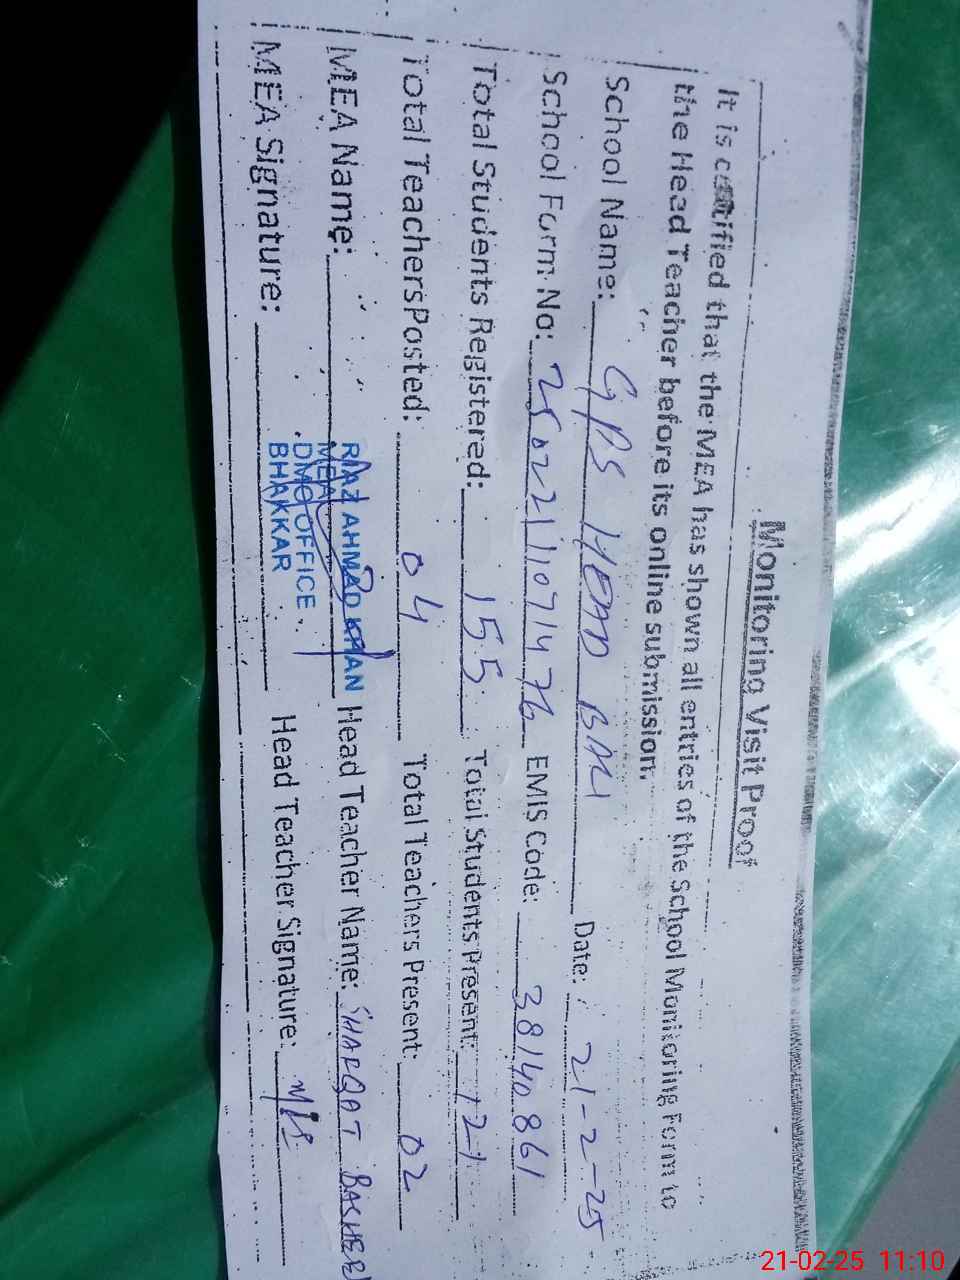 Monitoring Visit Proof
It is certified that the MEA has shown all entries of the School Monitoring Form to
the Head Teacher before its online submission.
School Name: GPS HEAD Date: 21-2-25
School Form No: 25022110714476 EMIS Code: 38140861
Total Students Registered: 155 Total Students Present: 121
Total Teachers Posted: 04 Total Teachers Present: 02
MEA Name: RIAZ AHMAD KHAN Head Teacher Name: BASHEER
MEA
DMO OFFICE
BHAKKAR
MEA Signature: Head Teacher Signature:
21-02-25 11:10